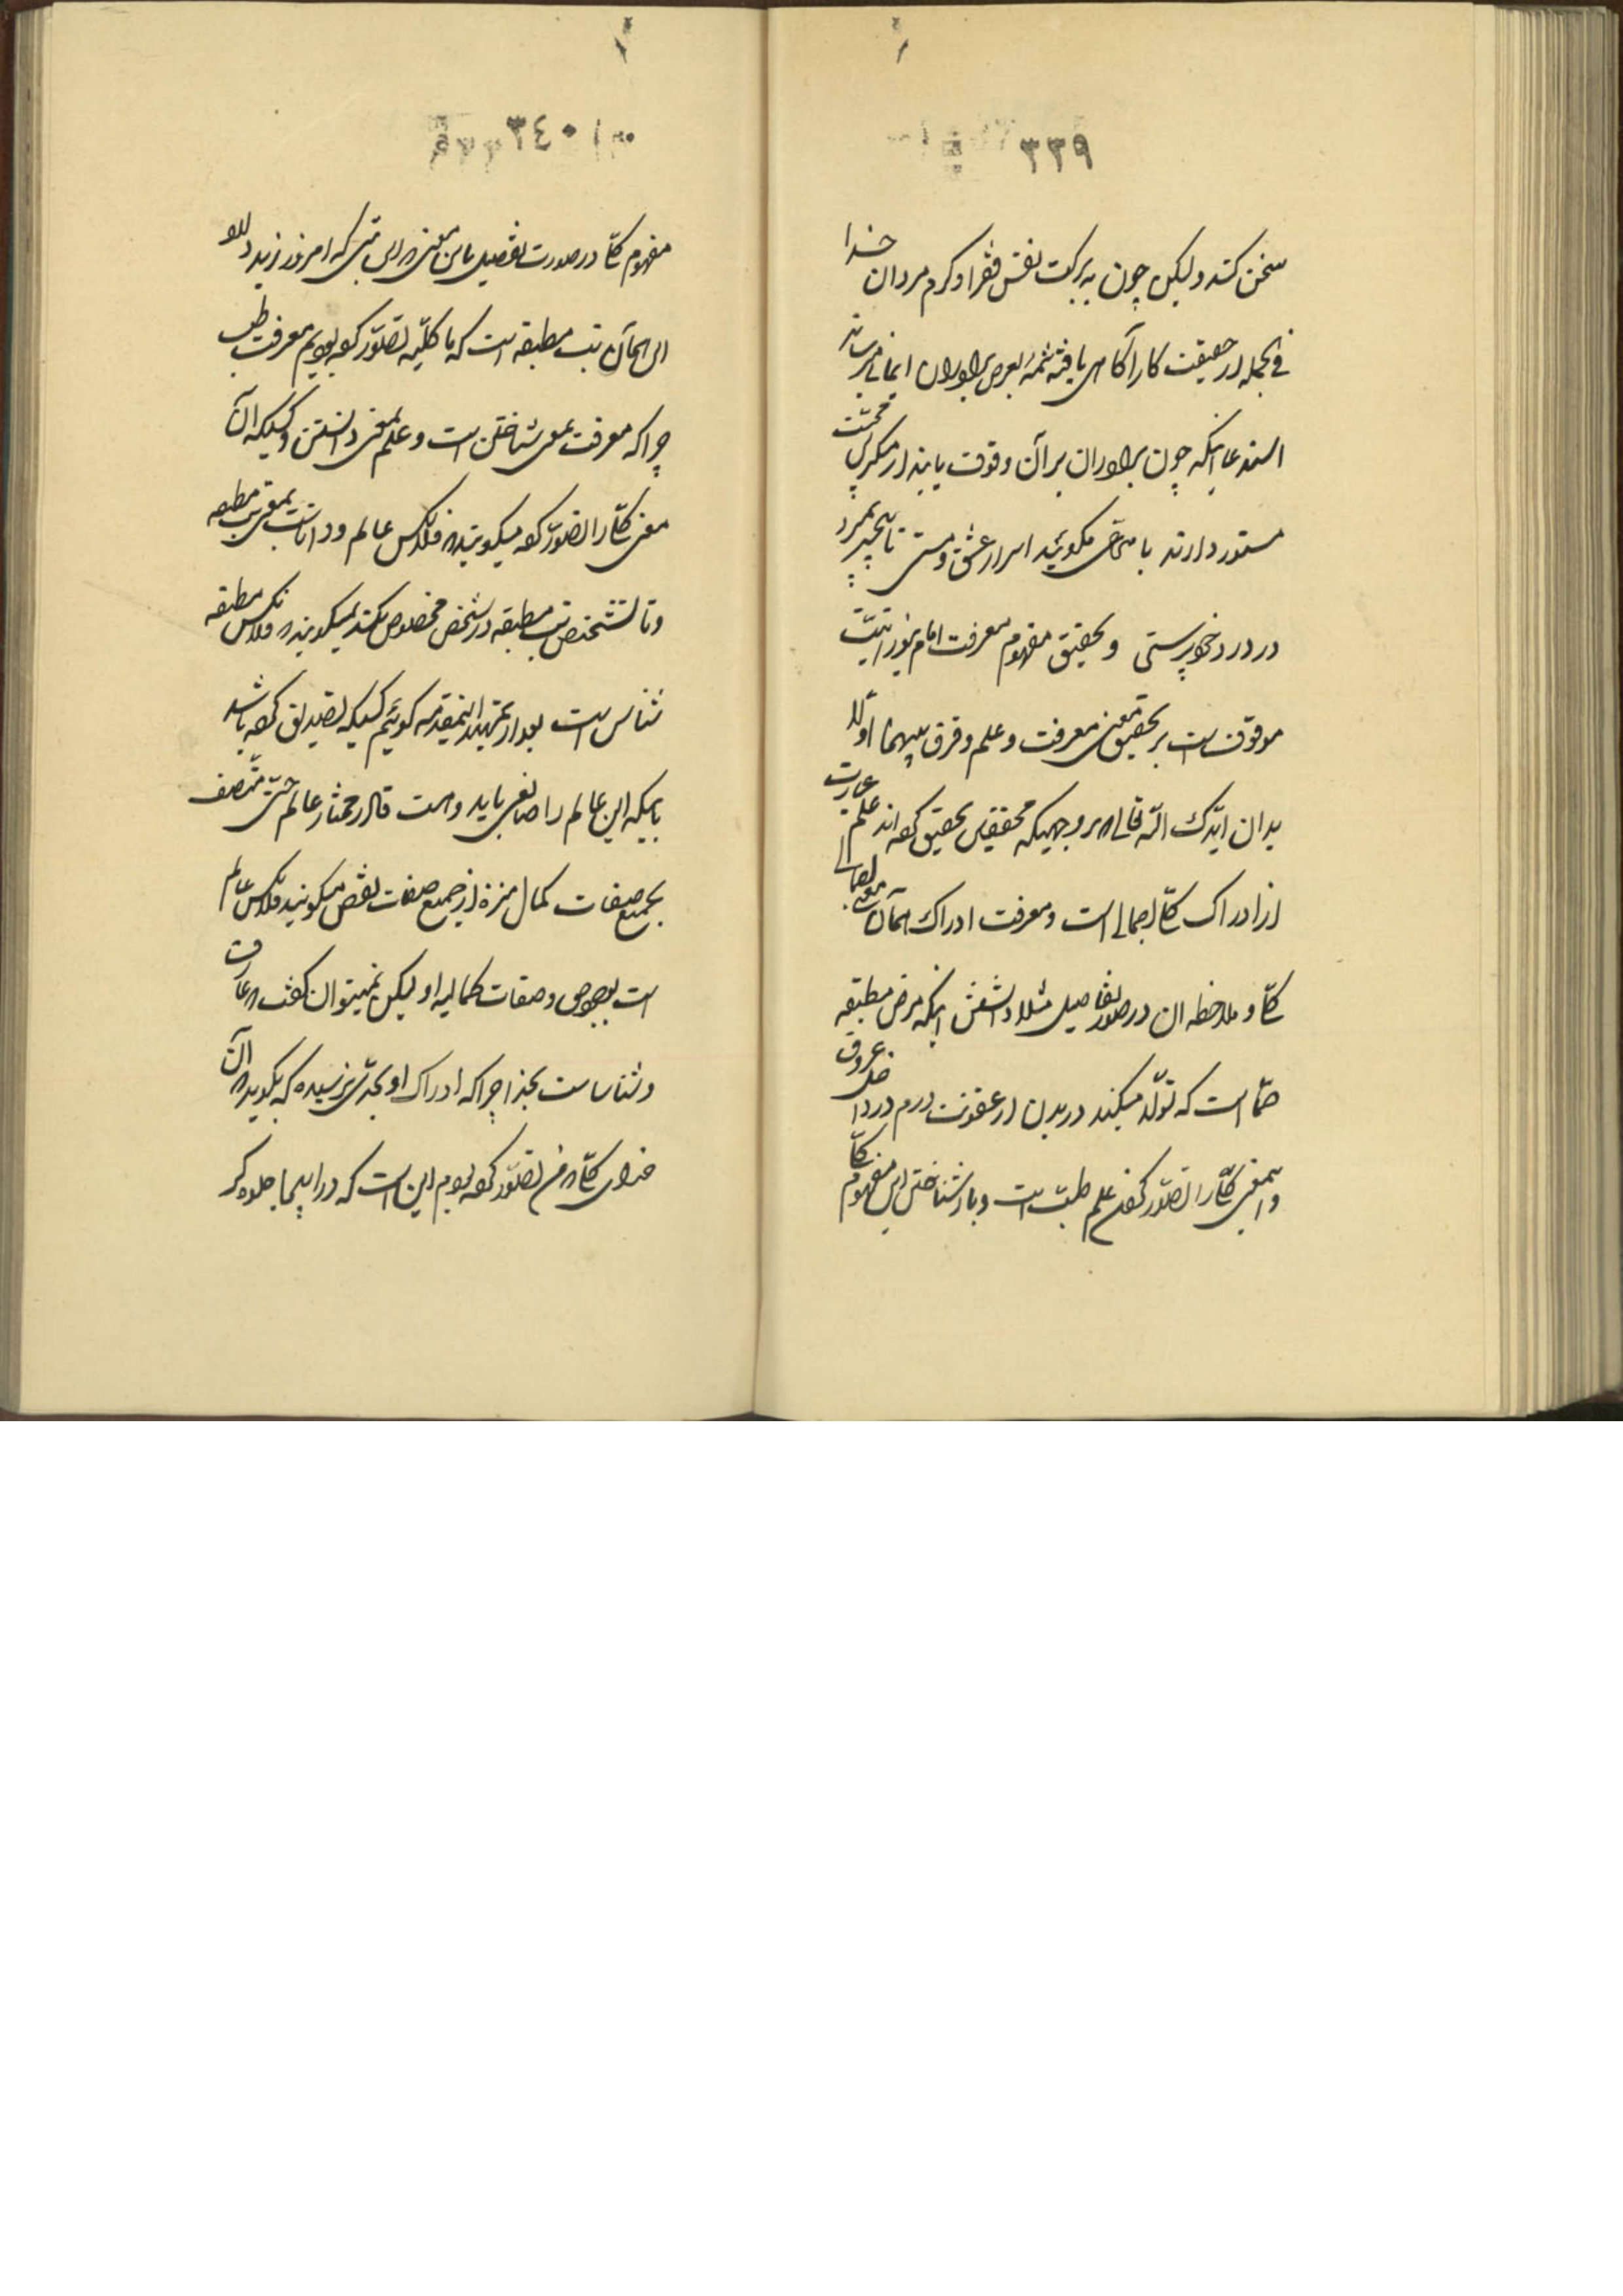 ٣٣٩
سخن کند ولیکن چون به برکت نفس فقرا و کرم مردان خدا
فی الجمله از حقیقت کار آگاهی یافته شمهٔ بعرض برادران ایمانی میرساند
استدعا اینکه چون برادران بر آن وقوف یابند از منکرین محبت
مستور دارند با مدعی مگوئید اسرار عشق و مستی تا بیخبر بمیرد
در درد خودپرستی و تحقیق مفهوم معرفت امام بنورانیت
موقوفست بر تحقیق معنی معرفت و علم و فرق بینهما اولا
بدان ایدک الله تعالی که بر وجهیکه محققین تحقیق کرده‌اند علم عبارت
از ادراک کلی اجمالی است و معرفت ادراک همآن معنی
کلی و ملاحظه آن در صور تفاصیل مثلا دانستن اینکه مرض مطبقه
حمّا است که تولّد میکند در بدن از عفونت دم در داخل عروق
و این معنی کلی را تصور کردن علم طبّ است و باز شناختن این مفهوم کلی
٣٤٠
مفهوم کلی در صورت تفصیل باین معنی که این تبی که امروز زید دارد
این همآن تب مطبقه است که ما کلیّه تصوّر کرده بودیم معرفت طب
چرا که معرفت بمعنی شناختن است و علم بمعنی دانستن و کسیکه آن
معنی کلی را تصوّر کرده میگویند که فلانکس عالم و داناست بمعنی تب مطبقه
و تا تشخیص تب مطبقه در شخص مخصوص نکند نمیگویند که فلانکس مطبقه
شناس است بعد از تمهید اینمقدمه گوئیم کسیکه تصدیق کرده باشد
باینکه این عالم را صانعی باید و هست قادر مختار عالم حیّ متّصف
بجمیع صفات کمال منزه از جمیع صفات نقص میگویند فلانکس عالم
است بوجود و صفات کمالیه او لیکن نمیتوان گفت که عارف
و شناساست بخدا چرا که ادراک او بحدّی نرسیده که بگوید که آن
خدای کلی که من تصوّر کرده بودم این است که در اینجا جلوه گر